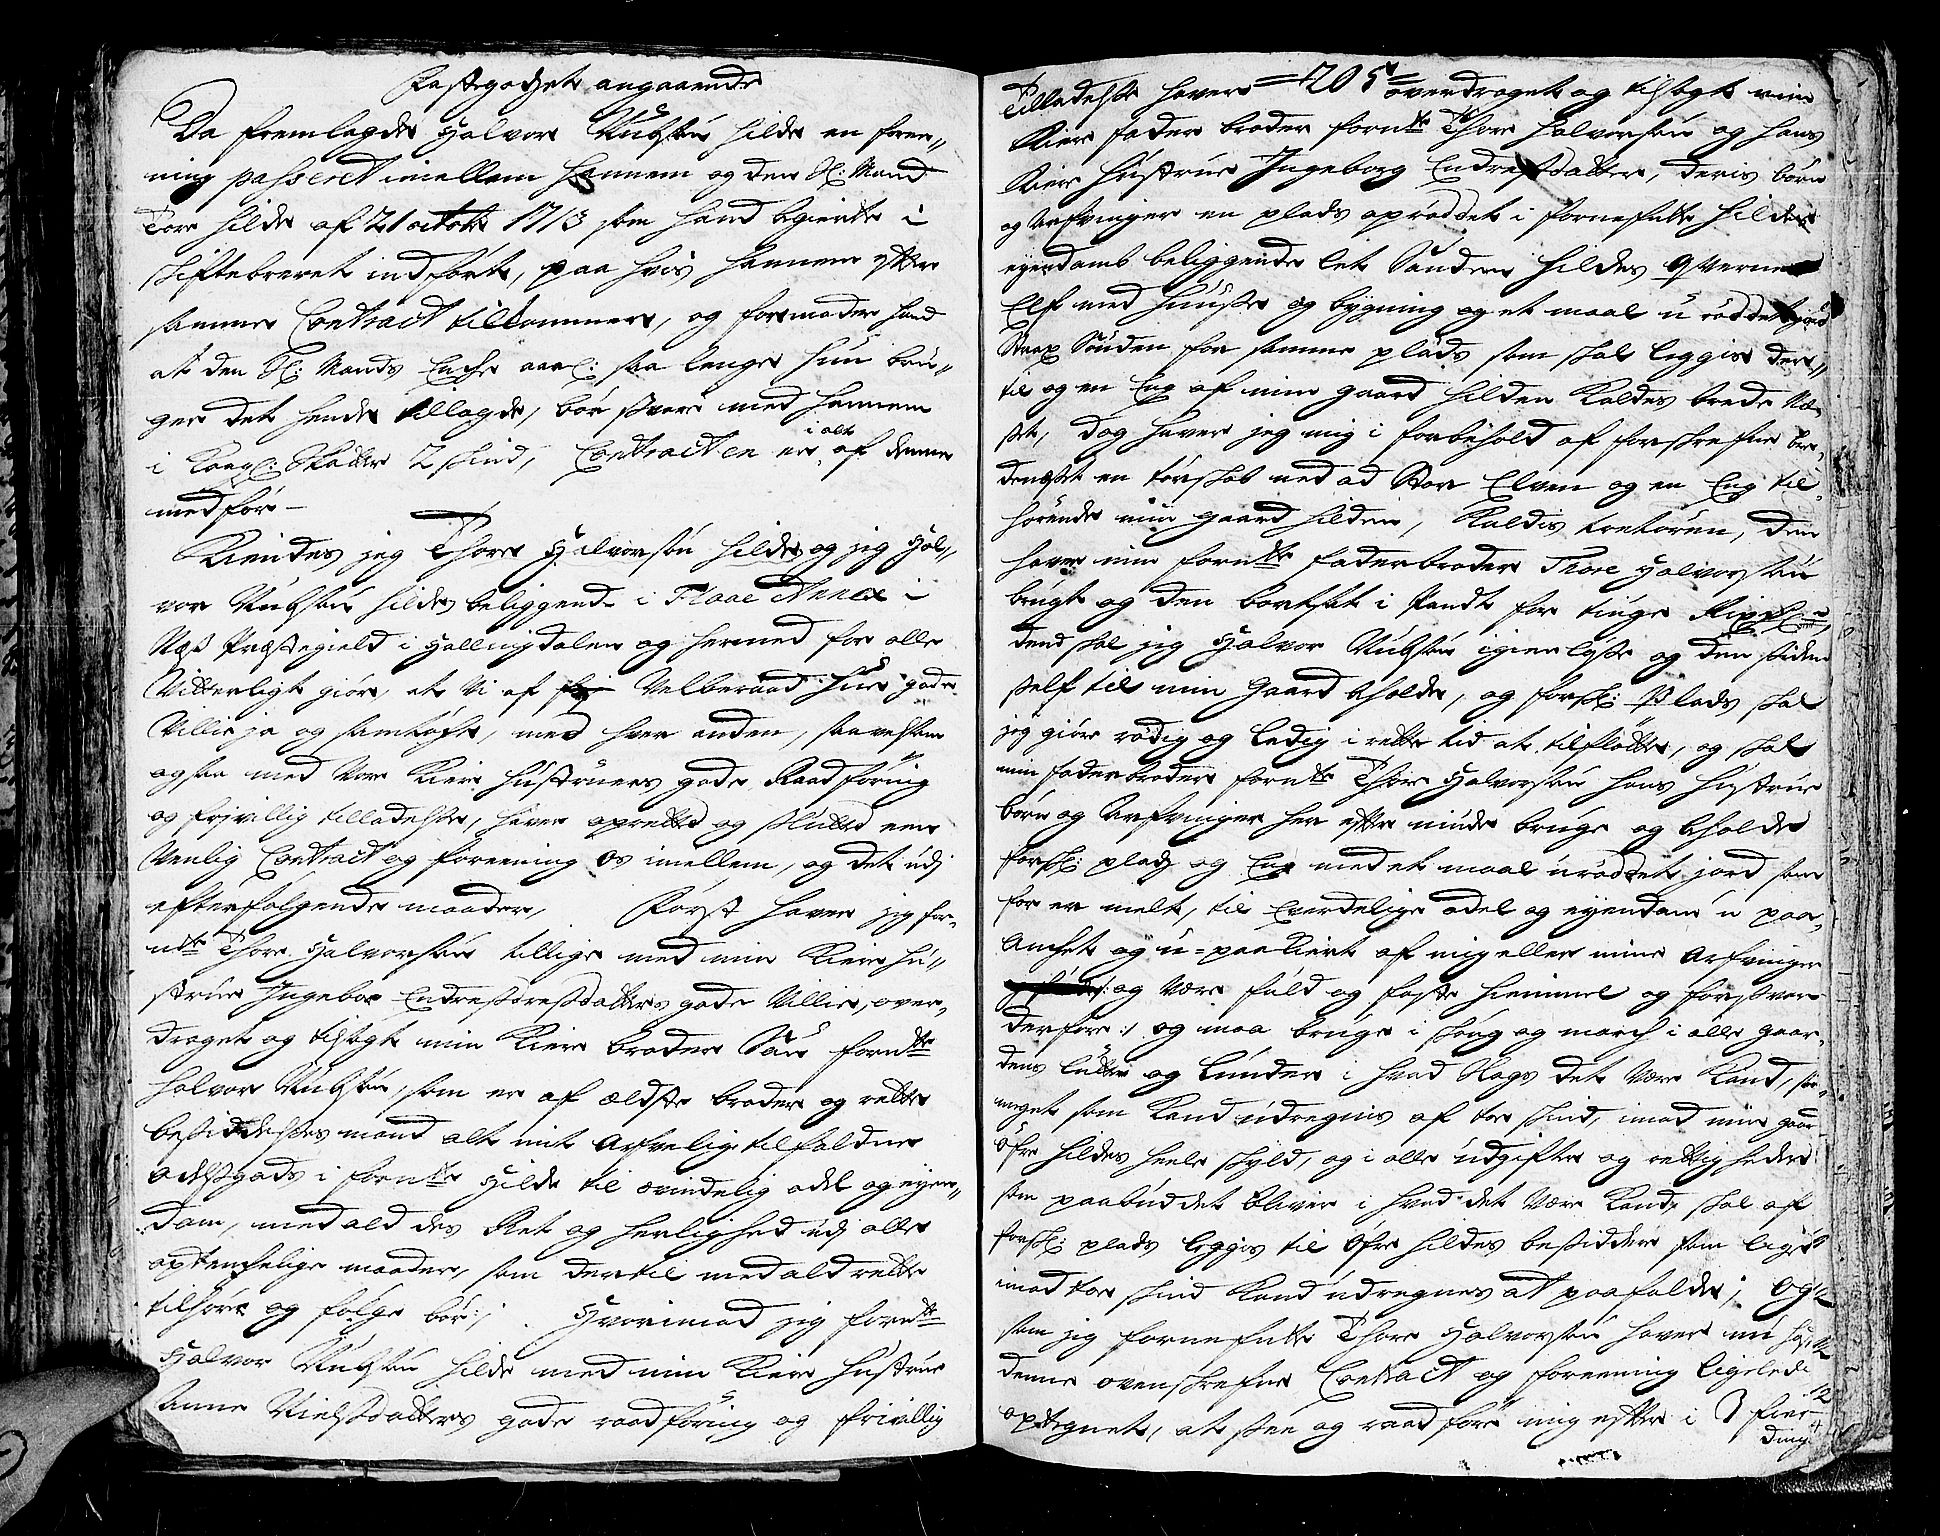 Fastegodset angaaende
Da fremlagde Halvor Nubsøn Hilde en foree„
ning passeret imellem hannem og den Sl: Mand
Tore Hilde af 21 octobr 1713 som hand begierte i
skiftebrevet indført, paa hvis hannem efter
samme Contract tilkommer, og formoder hand
at den Sl: Mands Encke aarl: saa lenge hun bru„
ger det hende tillagde, bør svare med hannem
i Kongl: Skatter 2 skind, Contracten er i alt af denne
medfør –
Kiendes jeg Thore Halvorsøn Hilde og jeg Hal„
vor Nubsøn Hilde beliggende i Flaae Annex i
Næs Præstegield i Hallingdalen og hermed for alle
Vitterligt giøre, at Vi af Velberaad Hue gode
Villie ja og samtøche, med hver anden, saavelsom
ogsaa med Vore Kiere Hustruers gode Raadføring
og frivillig tilladelse, haver oprettet og sluttet een
Venlig Contract og foreening os imellem, og det udj
efterfølgende maader, Først haver jeg for„
nte Thore Halvorsøn tillige med min Kiere Hu„
strue Ingebor Endresdatters gode Villie, over„
draget og tilsagt min Kiere broder Søn fornte
Halvor Nubsøn, som er af ældste broder og rette
besiddelses mand alt mit Arfvelig tilfaldne
Odelsgods i fornte Hilde til evindelig odel og eyen„
dom, med ald des Ret og herlighed udj alle
optenchelige maader, som dertil med ald rette
tilhøre og følge bør; Hvorimod jeg fornte
Halvor Nubsøn Hilde med min Kiere Hustrue
Anne Nielsdatters gode raadføring og frivillig
= 205 =
Tilladelse haver overdraget og tilsagt min
Kiere fader broder fornte Thore Halvorsøn og hans
Kiere Hustrue Ingeborg Endresdatter, deris børn
og Arfvinger en plads oprøddet i fornefnte Hildes
eyendomb beliggende let Sønden Hildes Qverne
Elf med Huusse og bygning og et maal u røddet jord
strax Sønden for samme plads som skal leggis der„
til og en Eng af min gaard Hilden Kaldes brede Næ„
set, dog haver jeg mig i forbehold af forskrefne bre„
denæset en tørskob ned ad Stor Elven og en Eng til„
hørende min gaard Hilden, Kaldis
haver min fornte faderbroder Thore Halvorsøn
brugt og den bortsat i Pandt for tiuge Rixdlr
dend skal jeg Halvor Nubsøn igienløse og den siden
self til min gaard beholde, og forskl: Plads skal
jeg giøre rødig og ledig i rette tid at tilfløtte, og skal
min faderbroder fornte Thore Halvorsøn hans Hustrue
børn og Arfvinger her efter nyde bruge og beholde
forskl: plads og Eng med et maal urøddet jord som
før er melt, til Everdelige odel og eyendom u paa„
anchet og u-paakiert af mig eller mine Arfvinger
og Være fuld og faste hiemmel og forsvar
derfore :/ og maa bruge i skoug og march i alle gaar„
dens lutter og lunder i hvad Slags det Være Kand, saa„
meget som Kand udregnis af toe skind, imod min gaar
Øfre Hildes heele skyld, og i alle udgifter og rettigheder
som paabuddet bliver i hvad det Være Kand, skal af
forskl: plads leggis til Øfre Hildes besidder som lige
imod toe skind Kand udregnes at paafalde; Og
som jeg fornefnte Thore Halvorsøn haver nu
denne ovenskrefne Contract og foreening ligelede
optegnet, at see og raadføre mig efter i 3 fier
ding